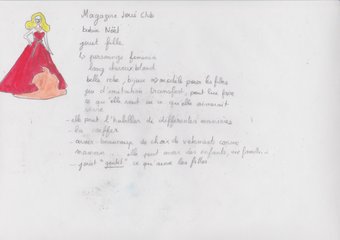 Magazine Joué Club
cadeau Noël
jouet fille
↳ personnage féminin
long cheveux blond
belle robe, bijoux => modèle pour les filles
jeu d'imitation, transfert, peut lui faire
ce qu'elle veut ou ce qu'elle aimerait
vivre
- elle peut l'habiller de différentes manières
- la coiffer
- avoir beaucoup de choix de vetements comme
maman ... elle peut avoir des enfants, une famille...
- jouet "       " ce qu'aime les filles